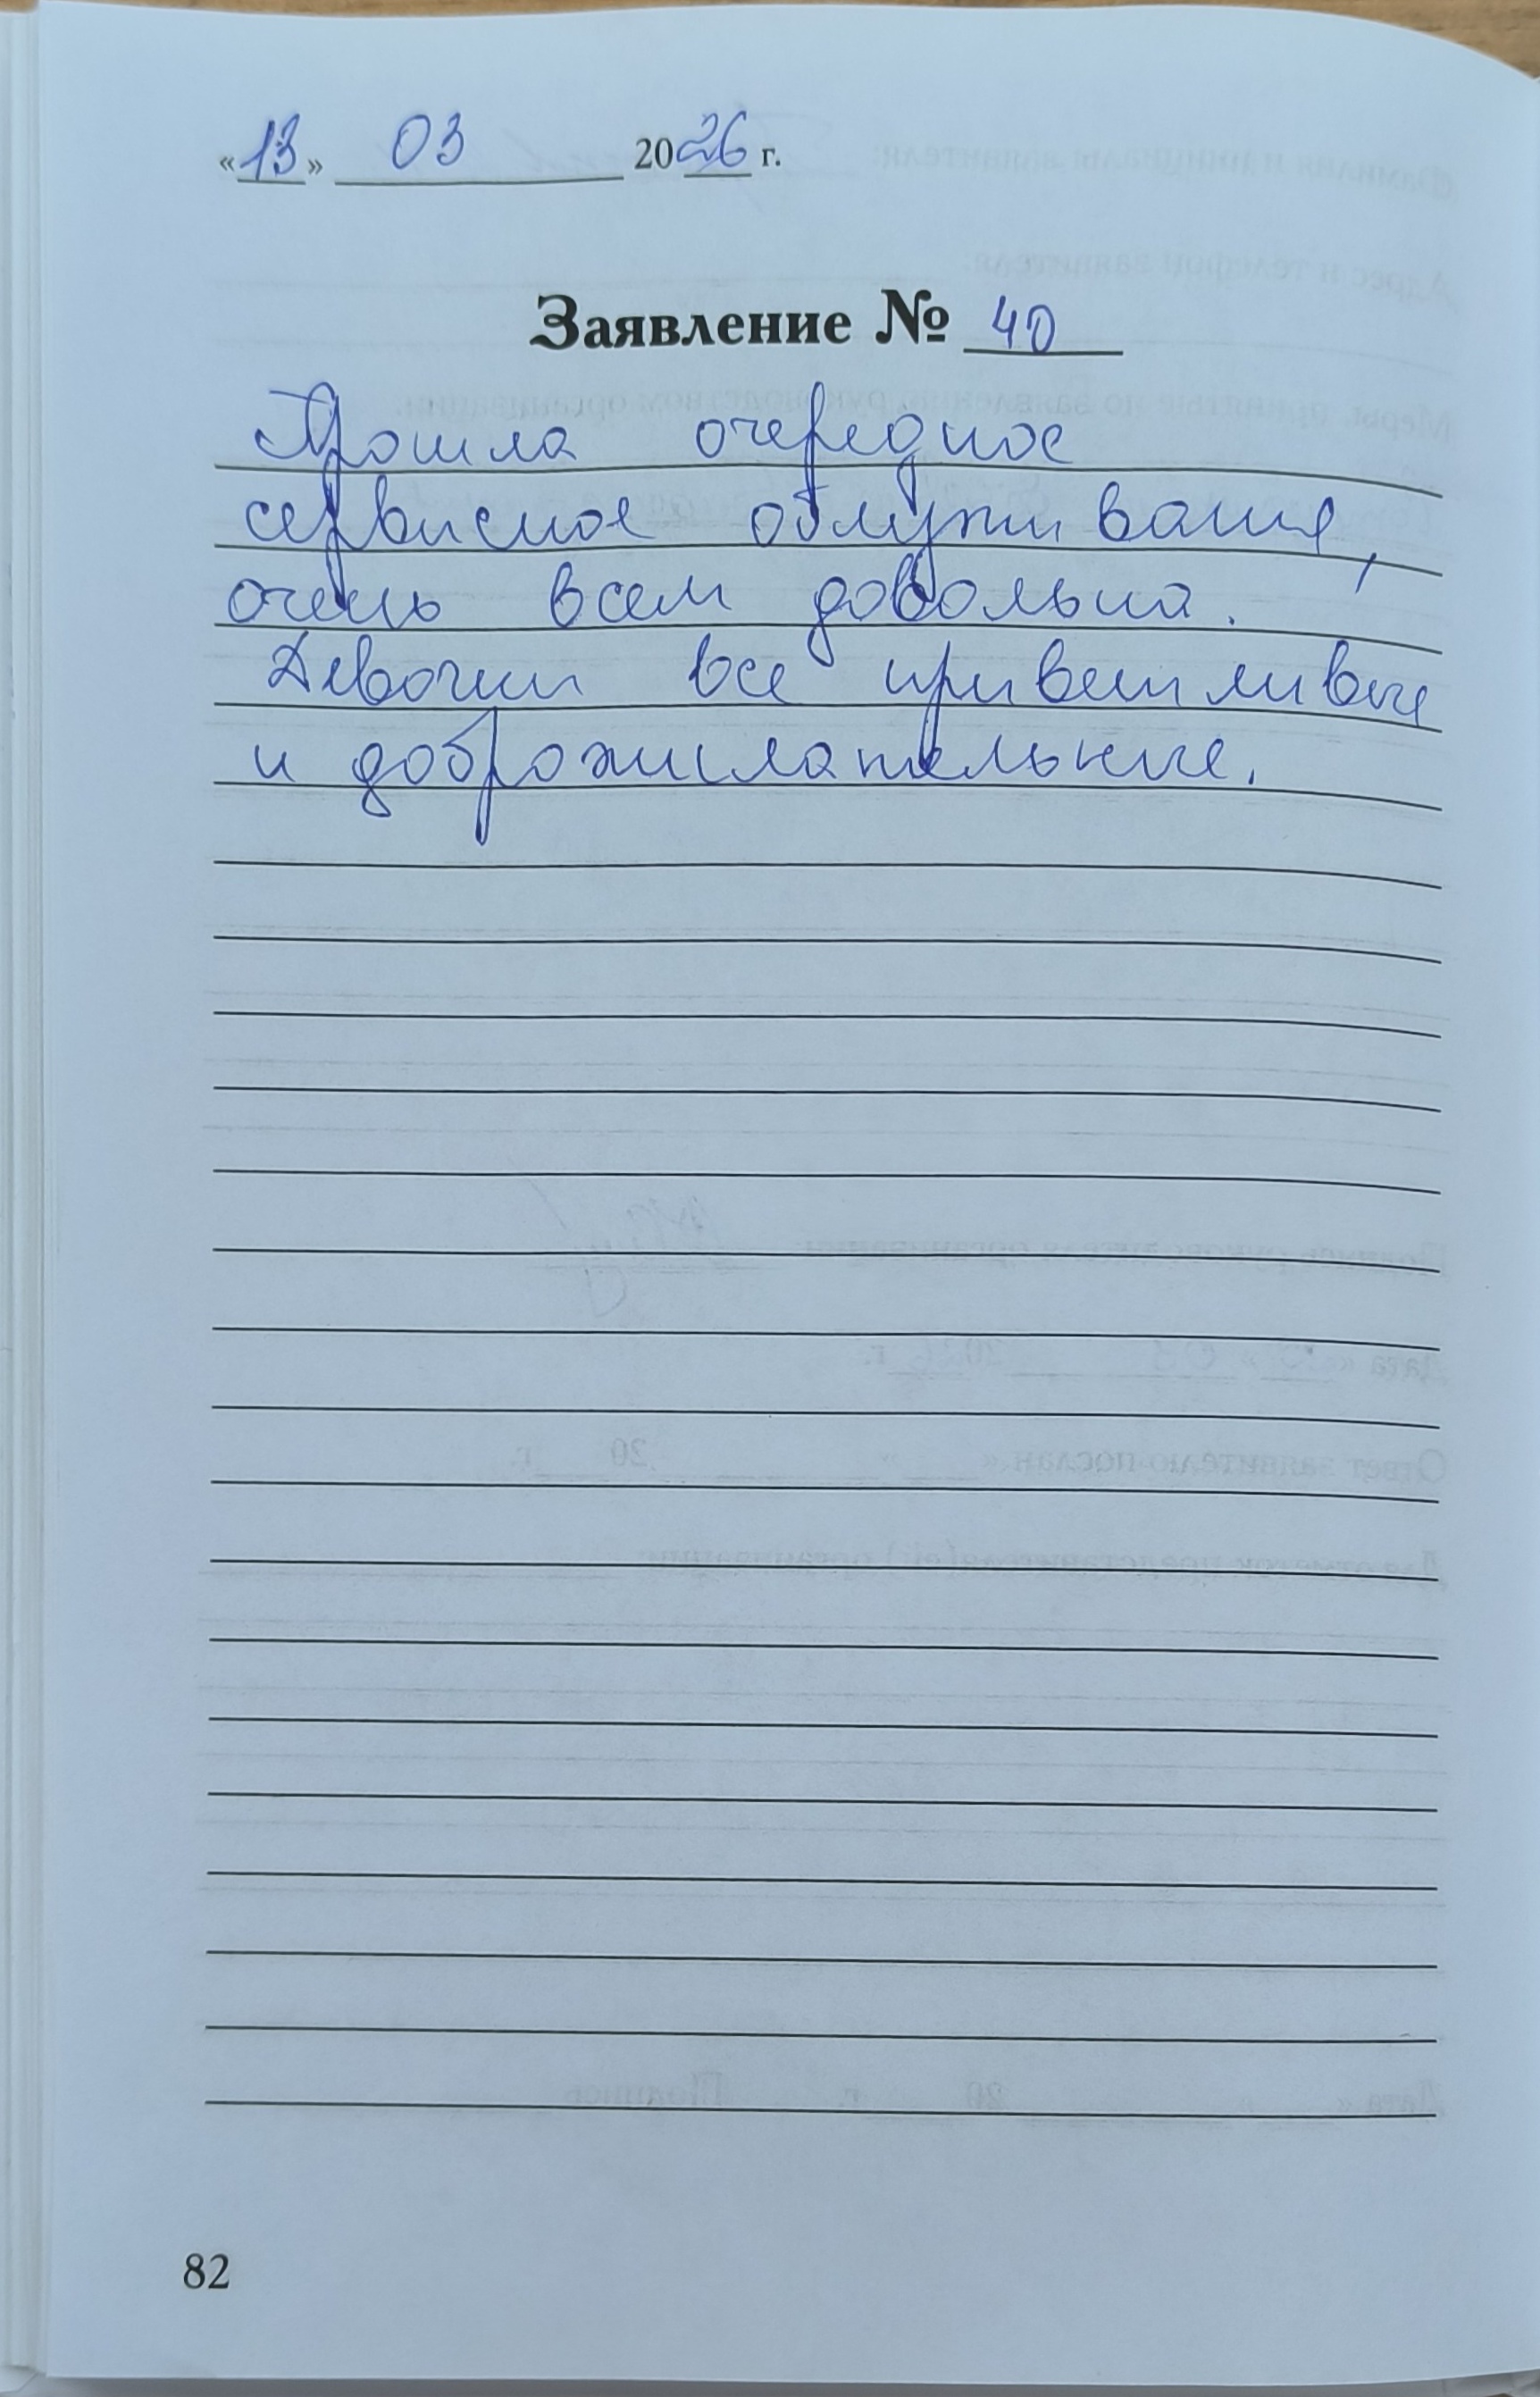 «13» 03 2026 г.
Заявление № 40
Прошла очередное
сервисное обслуживание,
очень всем довольна.
Девочки все приветливые
и доброжелательные.
82